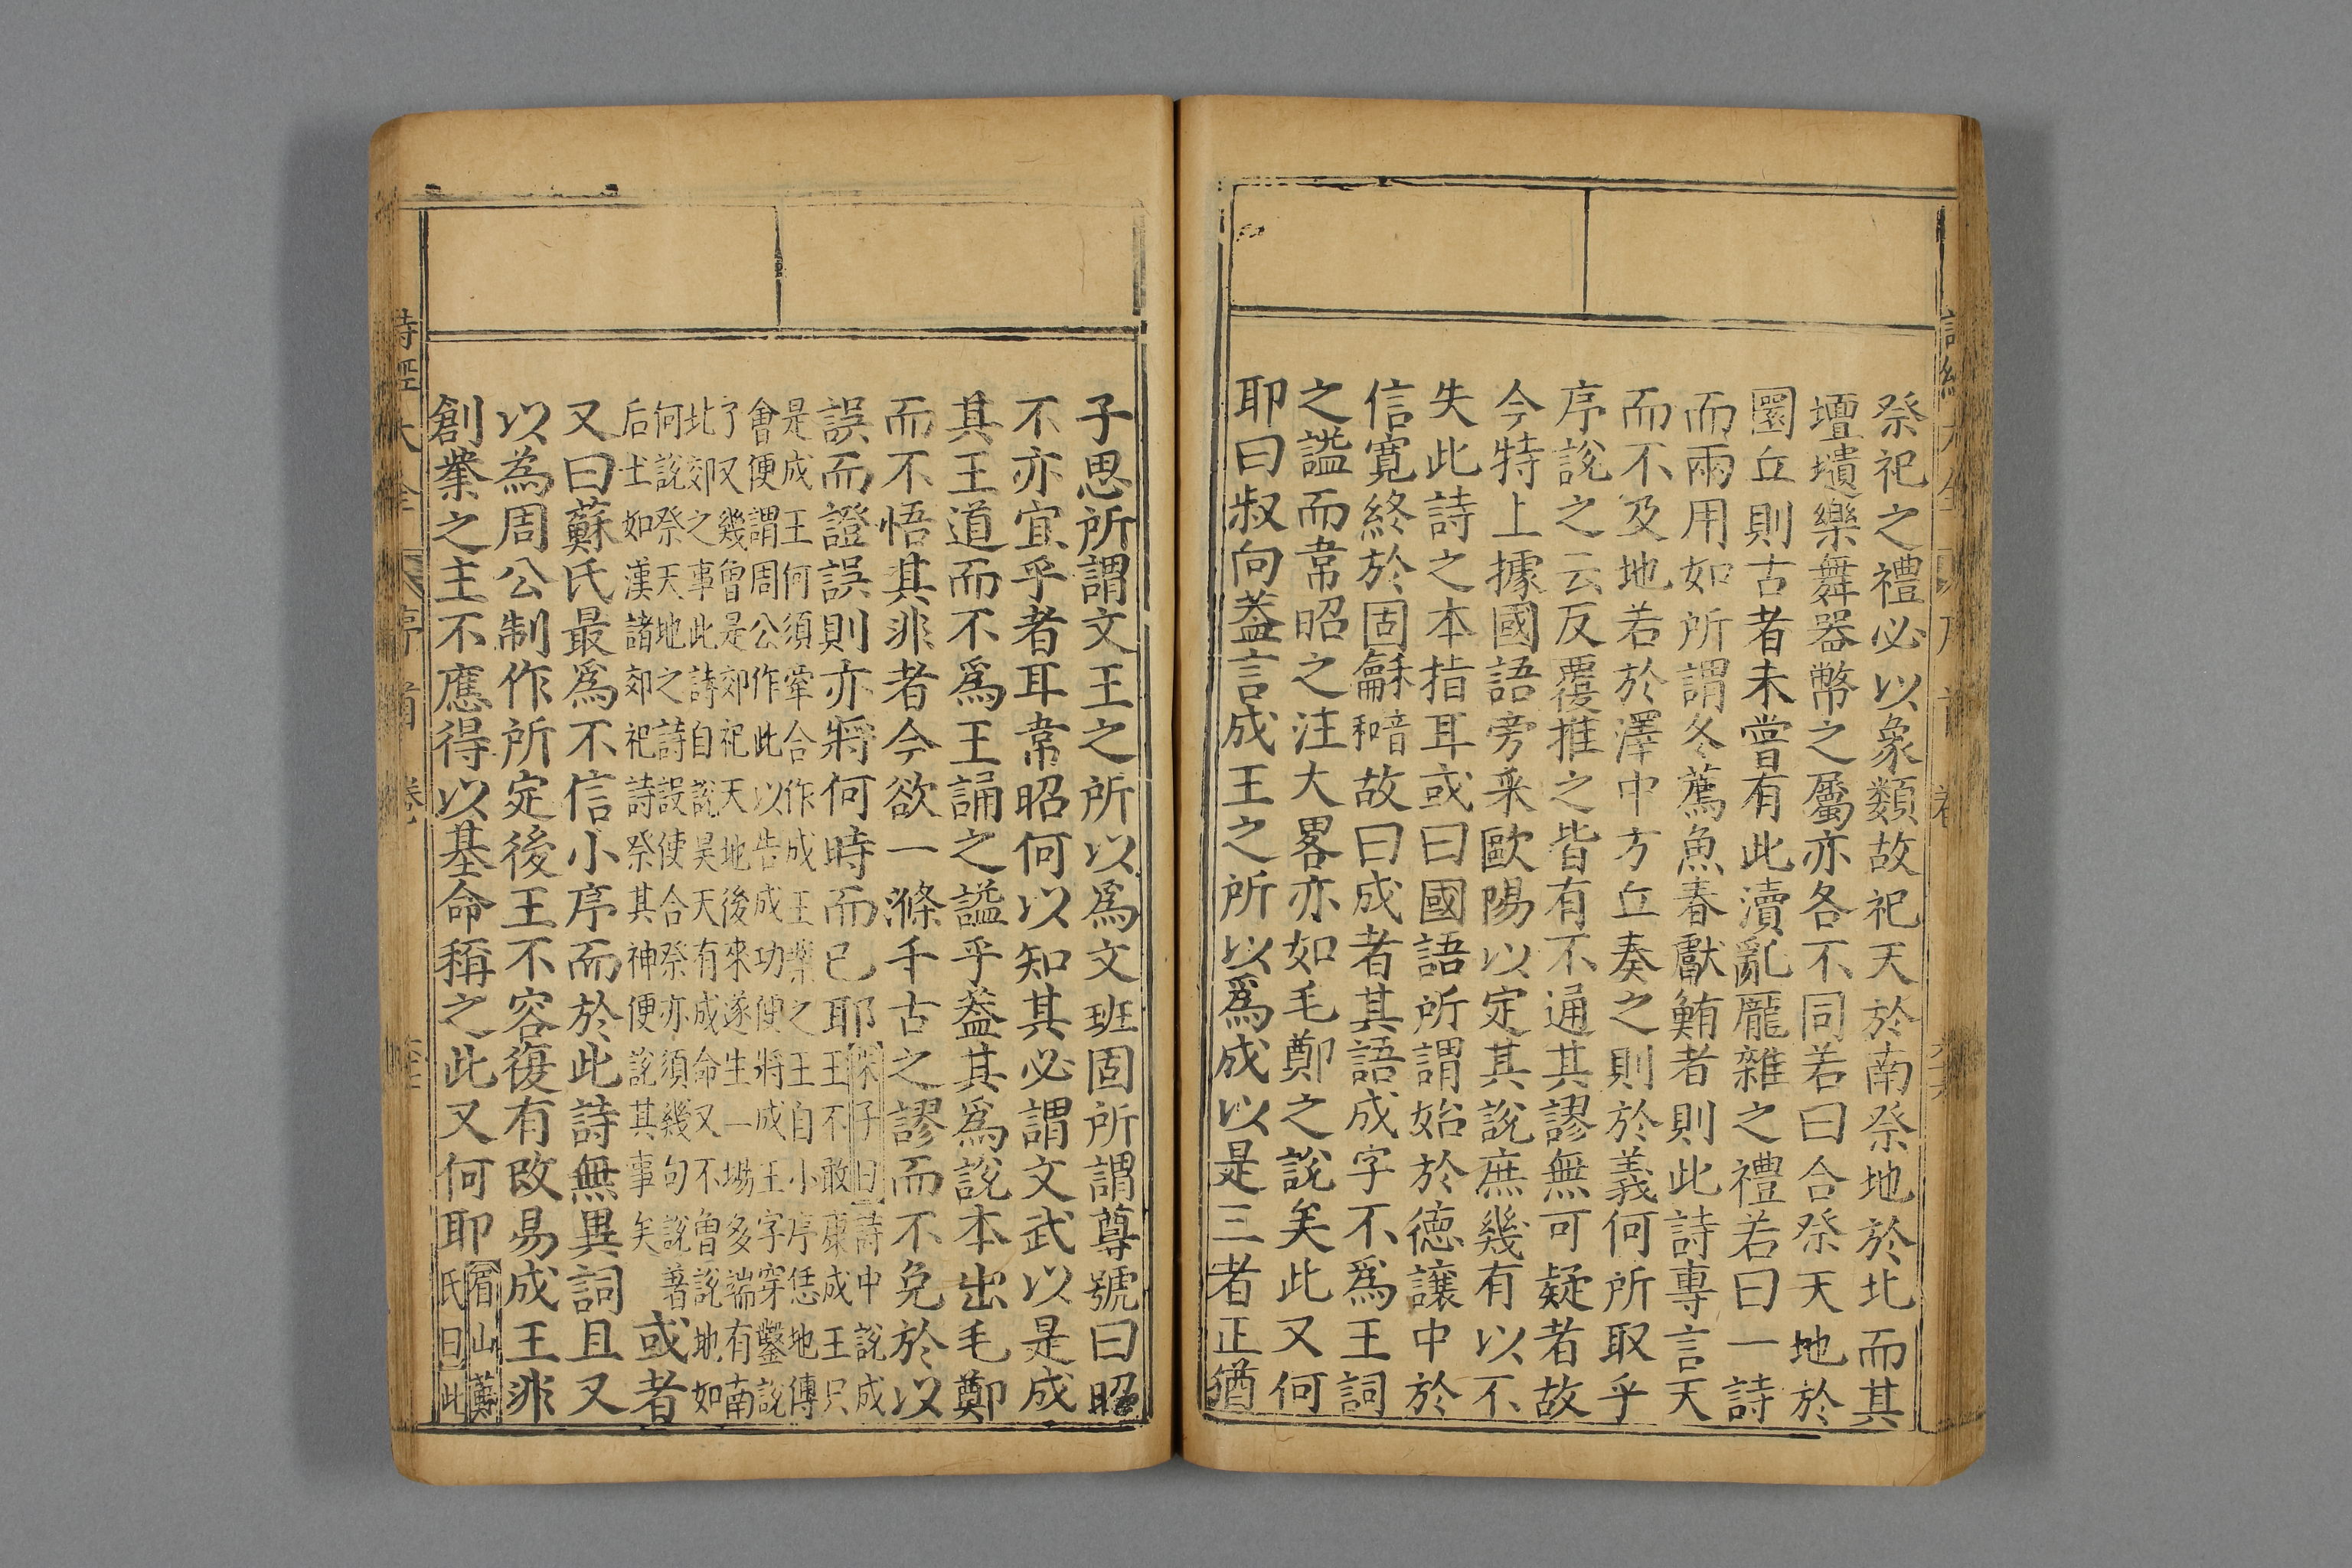 祭祀之禮必以象類故祀天於南祭地於北而其
壇壝樂舞器幣之屬亦各不同若曰合祭天地於
圜丘則古者未嘗有此瀆亂厖雜之禮若曰一詩
而兩用如所謂冬薦魚春獻鮪者則此詩專言天
而不及地若於澤中方丘奏之則於義何所取乎
序說之云反覆推之皆有不通其謬無可疑者故
今特上據國語旁采歐陽以定其說庶幾有以不
失此詩之本指耳或曰國語所謂始於德讓中於
信寛終於固龢故曰成者其語成字不爲王詞
之謚而韋昭之注大畧亦如毛鄭之說矣此又何
耶曰叔向蓋言成王之所以爲成以是三者正猶
子思所謂文王之所以爲文班固所謂尊號曰昭
不亦宜乎者耳韋昭何以知其必謂文武以是成
其王道而不爲王誦之謚乎蓋其爲說本出毛鄭
而不悟其非者今欲一滌千古之謬而不免於以
誤而證誤則亦將何時而已耶
朱子曰詩中說成
王不敢康成王只
是成王何須牽合作成王業之王自小序恁地傳
會便謂周公作此以告成功便將成王字穿鑿說
了又幾曾是郊祀天地後來遂生一場多端有南
北郊之事此詩自說昊天有成命又不曾說地如
何說祭天地之詩設使合祭亦須幾句說著
后土如漢諸郊祀詩祭其神便說其事矣
或者
又曰蘇氏最爲不信小序而於此詩無異詞且又
以為周公制作所定後王不容復有改易成王非
創業之主不應得以基命稱之此又何耶
眉山蘇
氏曰此
詩經大全
序 首卷